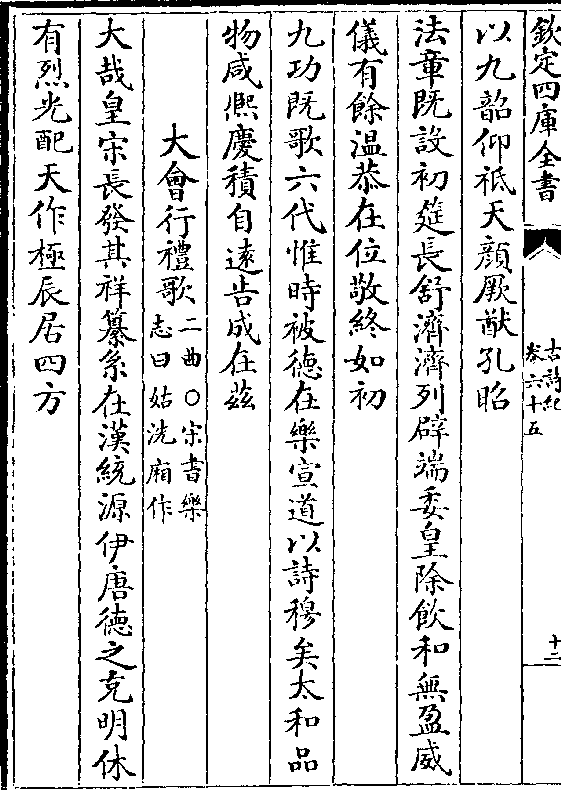 欽定四庫全書
古詩紀
卷六十五
十二
以九韶仰祗天顔厥猷孔昭
法章既設初筵長舒濟濟列辟端委皇除飲和無盈威
儀有餘温恭在位敬終如初
九功既歌六代惟時被德在樂宣道以詩穆矣太和品
物咸熈慶積自逺告成在兹
大會行禮歌二曲○宋書樂
志曰姑洗廂作
大哉皇宋長發其祥纂系在漢統源伊唐德之克明休
有烈光配天作極辰居四方